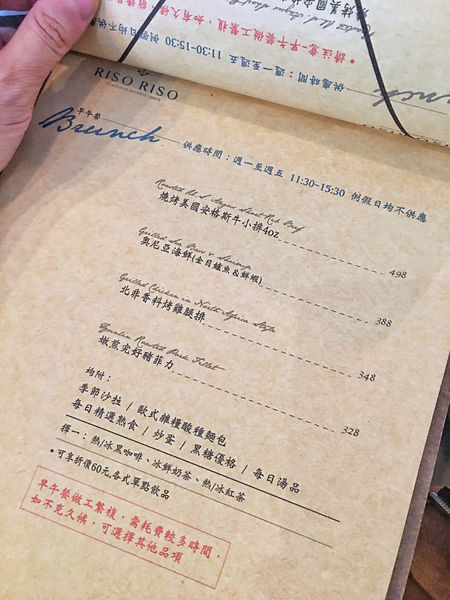 RISO RISO
早午餐
Brunch
供應時間：週一至週五 11:30-15:30 例假日均不供應
燒烤美國安格斯牛小排4oz 498
Grilled Sea Bass & Shrimp
奧尼亞海鮮(金目鱸魚&鮮蝦) 388
Grilled Chicken in North Africa Style
北非香料烤雞腿排 348
Roasted Pork Fillet
嫩煎完好豬菲力 328
均附：
季節沙拉 / 歐式雜糧酸種麵包
每日精選熟食 / 炒蛋 / 黑糖優格 / 每日湯品
擇一：熱/冰黑咖啡、冰鮮奶茶、熱/冰紅茶
•可享折價60元,各式單點飲品
早午餐做工繁複，需耗費較多時間，
如不克久候，可選擇其他品項
供應時間：週一至週五 11:30-15:30 例假日
•請注意-早午餐做工繁複